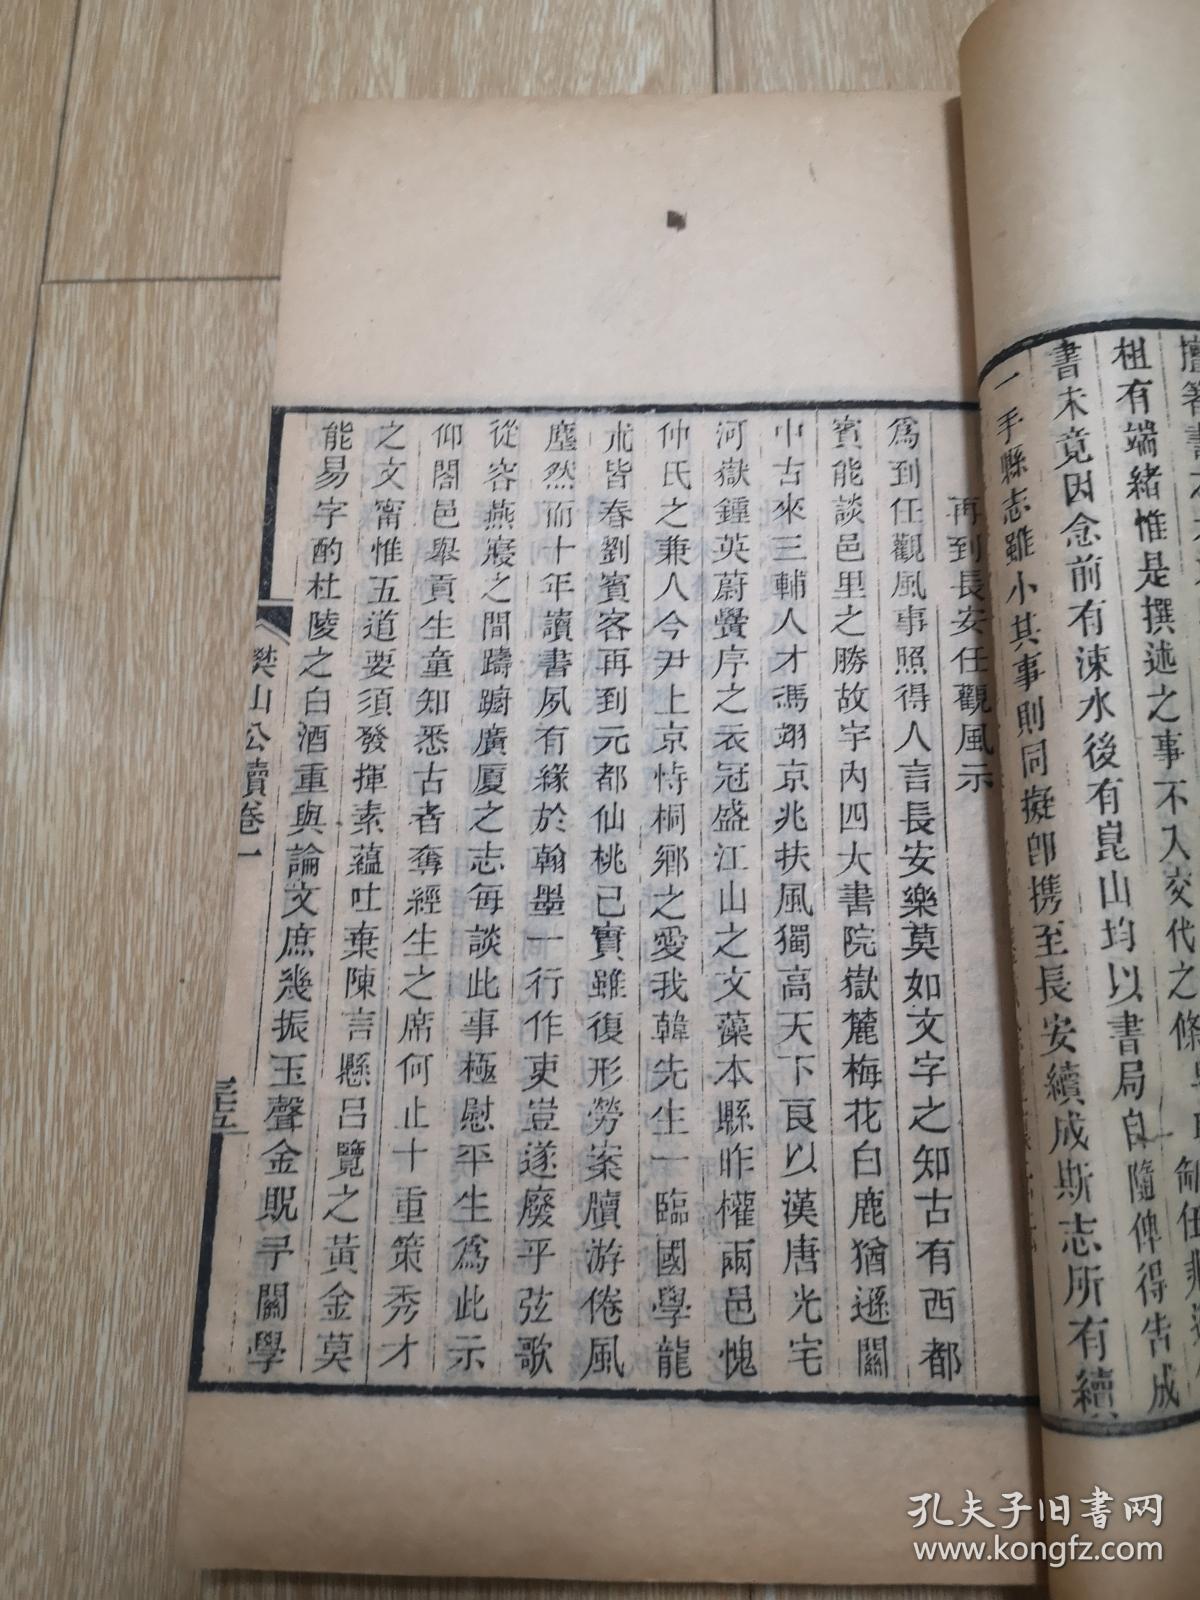 書未竟因念前有涑水後有崑山均以書局自隨俾得告成
祖有端緒惟是撰述之事不入交代之條
一手縣志雖小其事則同擬卽携至長安續成斯志所有續
再到長安任觀風示
爲到任觀風事照得人言長安樂莫如文字之知古有西都
賓能談邑里之勝故宇內四大書院嶽麓梅花白鹿猶遜關
中古來三輔人才馮翊京兆扶風獨高天下良以漢唐光宅
河嶽鍾英蔚黌序之衣冠盛江山之文藻本縣昨權兩邑愧
仲氏之兼人今尹上京恃桐鄉之愛我韓先生一臨國學龍
朮皆春劉賓客再到元都仙桃已實雖復形勞案牘游倦風
塵然而十年讀書夙有緣於翰墨一行作吏豈遂廢乎弦歌
從容燕寢之間躊躕廣厦之志每談此事極慰平生爲此示
仰閤邑舉貢生童知悉古者奪經生之席何止十重策秀才
之文甯惟五道要須發揮素蘊吐棄陳言懸呂覽之黃金莫
能易字酌杜陵之白酒重與論文庶幾振玉聲金貺予關學
樊山公牘卷一
三五
孔夫子旧书网
www.kongfz.com